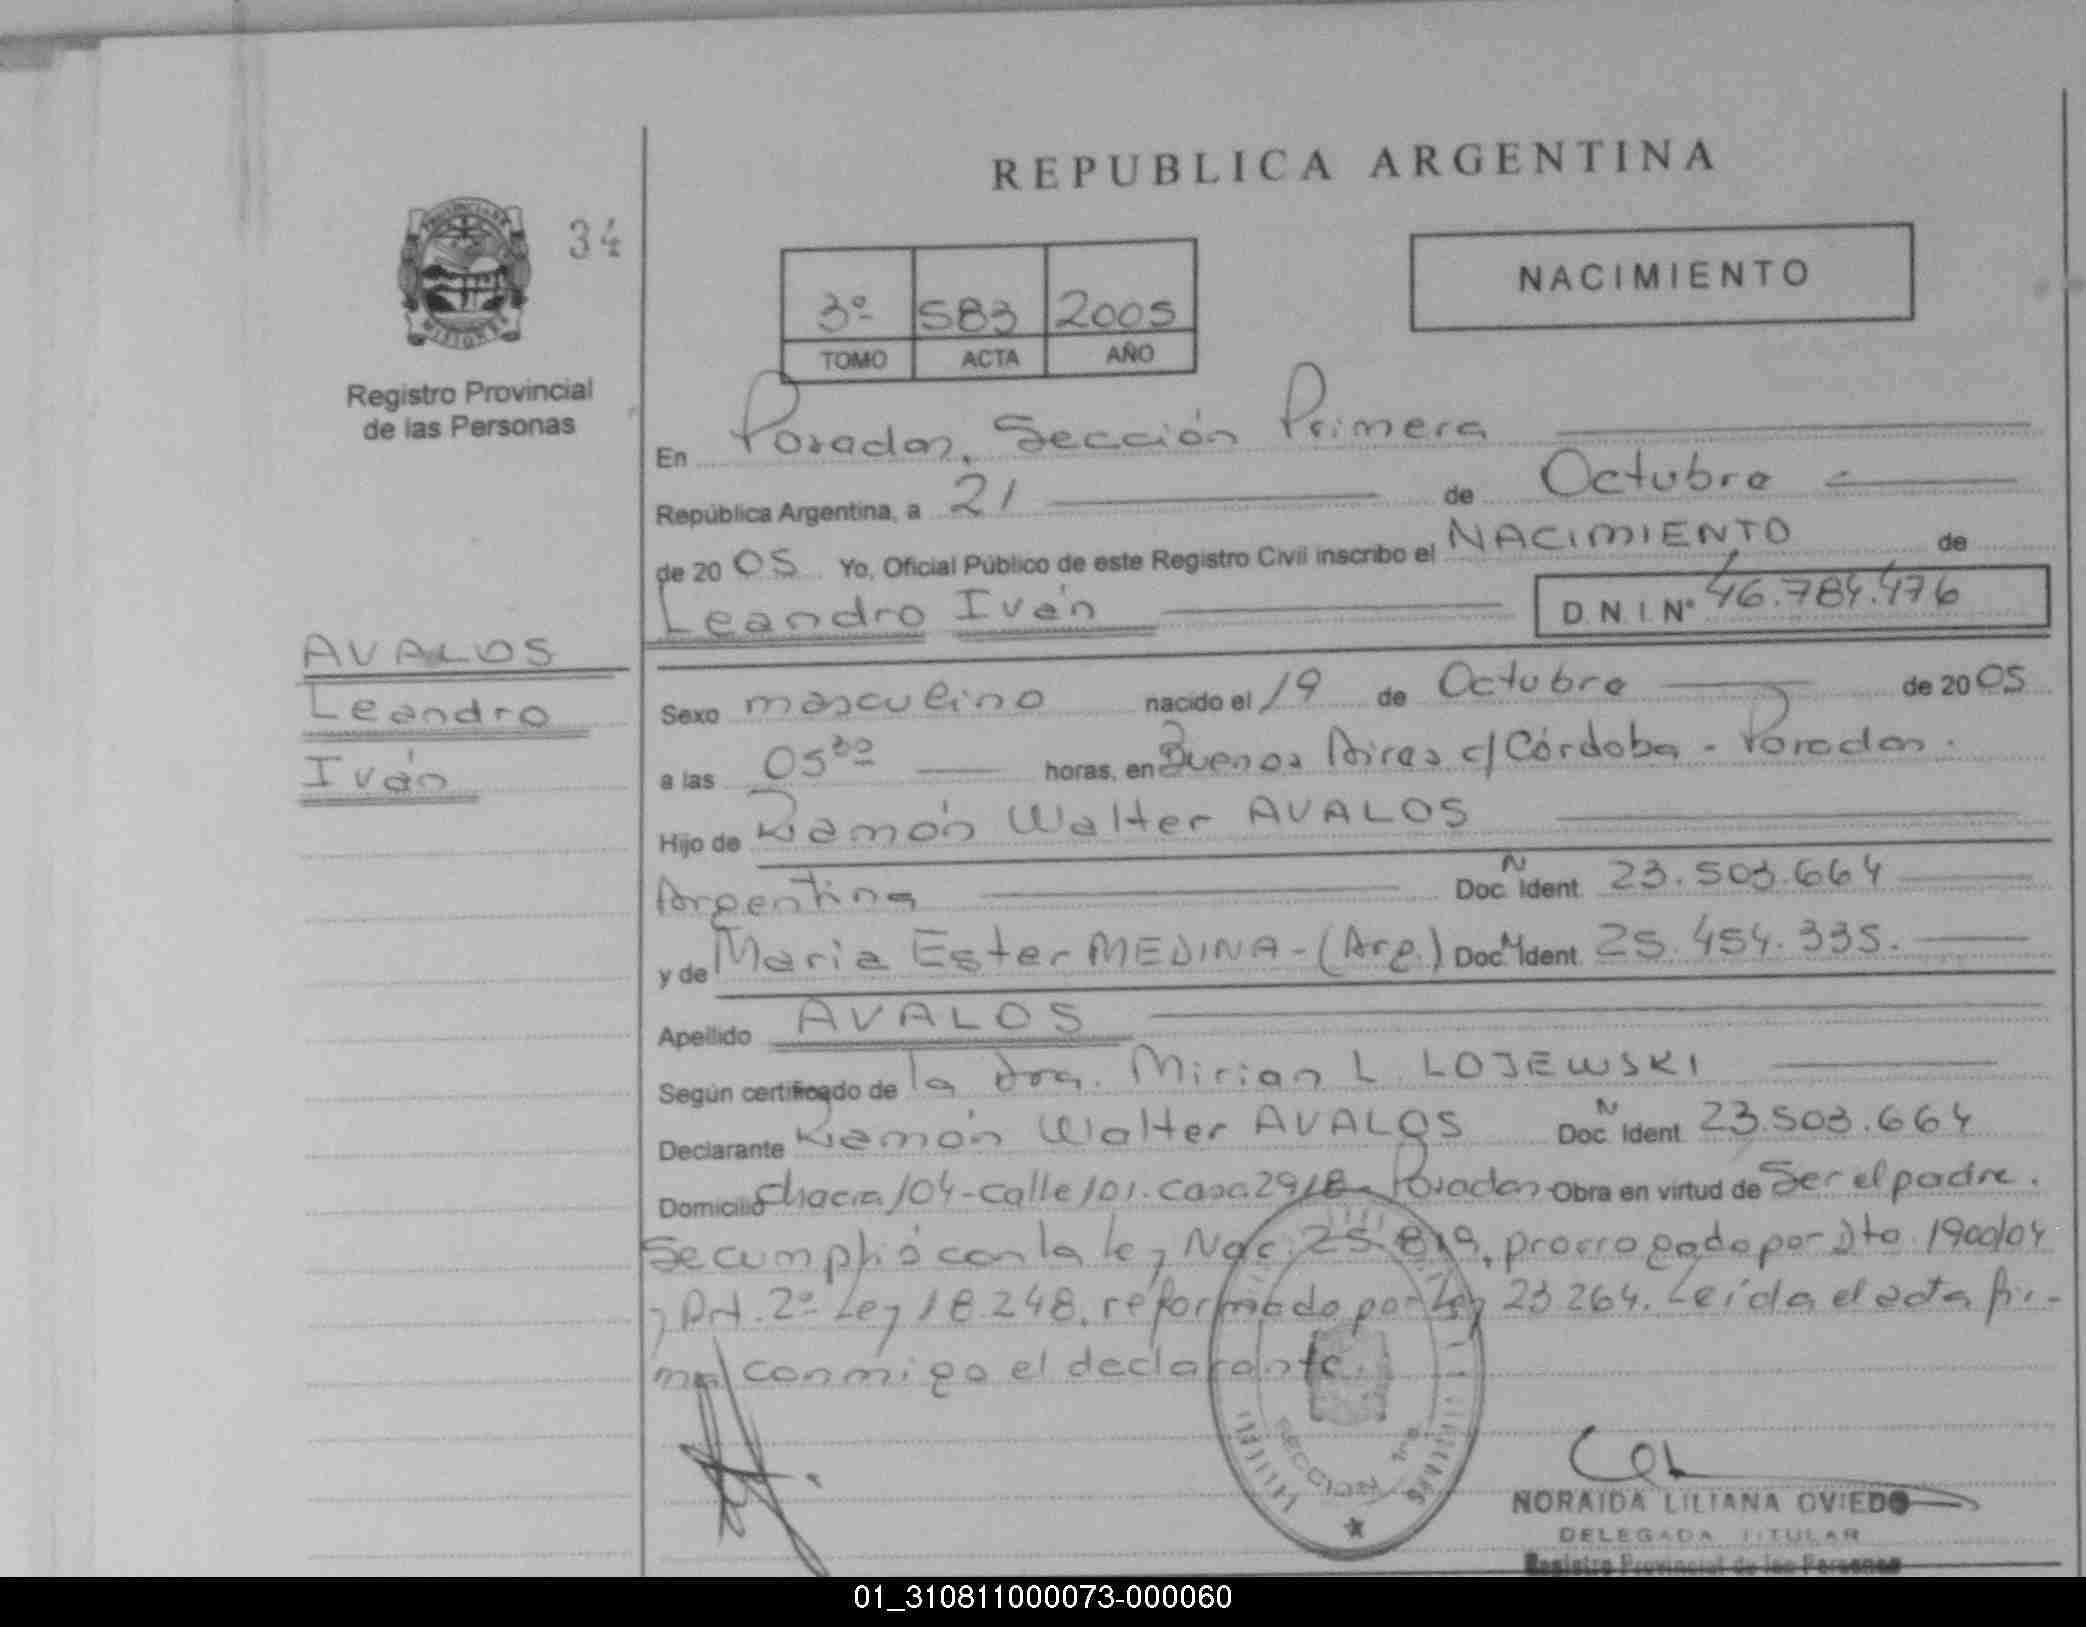 REPUBLICA ARGENTINA
34
NACIMIENTO
3º 583 2005
TOMO ACTA AÑO
Registro Provincial
de las Personas
En Posadas, Sección Primera
República Argentina, a 21 de Octubre
de 2005 Yo, Oficial Público de este Registro Civil inscribo el NACIMIENTO de
Leandro Iván D.N.I.Nº 46.784.476
AVALOS
Leandro
Iván
Sexo masculino nacido el 19 de Octubre de 2005
a las 05³⁰ horas, en Buenos Aires c/Córdoba - Posadas.
Hijo de Ramón Walter AVALOS
Argentina Doc. N Ident. 23.503.664
y de Maria Ester MEDINA - (Arg.) Doc. N Ident. 25.454.335.
Apellido AVALOS
Según certificado de la Dra. Mirian L. LOJEWSKI
Declarante Ramón Walter AVALOS Doc. N Ident. 23.503.664
Domicilio Chacra 104 - calle 101. casa 2918 - Posadas Obra en virtud de Ser el padre.
Se cumplió con la ley Nac. 25.819, prorrogado por Dto. 1900/04
y Art. 2º Ley 18.248, reformado por Ley 23264. Leída el acta fir-
ma conmigo el declarante.
SECCION 1ra
NORAIDA LILIANA OVIEDO
DELEGADA TITULAR
Registro Provincial de las Personas
01_310811000073-000060